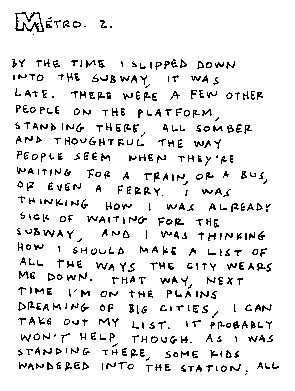 MÉTRO. 2.
BY THE TIME I SLIPPED DOWN
INTO THE SUBWAY, IT WAS
LATE. THERE WERE A FEW OTHER
PEOPLE ON THE PLATFORM,
STANDING THERE, ALL SOMBER
AND THOUGHTFUL THE WAY
PEOPLE SEEM WHEN THEY'RE
WAITING FOR A TRAIN, OR A BUS,
OR EVEN A FERRY. I WAS
THINKING HOW I WAS ALREADY
SICK OF WAITING FOR THE
SUBWAY, AND I WAS THINKING
HOW I SHOULD MAKE A LIST OF
ALL THE WAYS THE CITY WEARS
ME DOWN. THAT WAY, NEXT
TIME I'M ON THE PLAINS
DREAMING OF BIG CITIES, I CAN
TAKE OUT MY LIST. IT PROBABLY
WON'T HELP, THOUGH. AS I WAS
STANDING THERE, SOME KIDS
WANDERED INTO THE STATION, ALL